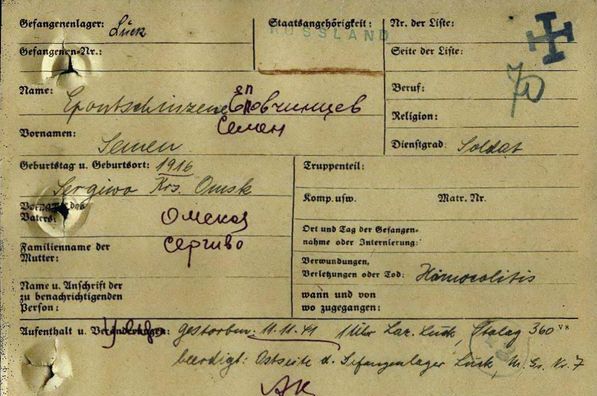 Gefangenenlager: Lück
Staatsangehörigkeit: RUSSLAND
Nr. der Liste:
Gefangenen-Nr.:
Seite der Liste:
Name: Epontschinzene Еповчинцев
Beruf:
70
Religion:
Vornamen: Semen Семен
Dienstgrad: Soldat
Geburtstag u. Geburtsort: 1916
Sergiwo Krs. Omsk
Truppenteil:
Komp. usw. Matr. Nr.
Vorname des
Vaters:
Омская
Сергиво
Ort und Tag der Gefangen-
nahme oder Internierung:
Familienname der
Mutter:
Verwundungen,
Verletzungen oder Tod: Hämocolitis
Name u. Anschrift der
zu benachrichtigenden
Person:
wann und von
wo zugegangen:
Aufenthalt u. Veränderungen: gestorben: 11.11.41 Uhr Laz. Luck, Stalag 360
beerdigt: Ostseite d. Gefangenlager Luck, Nr. 7